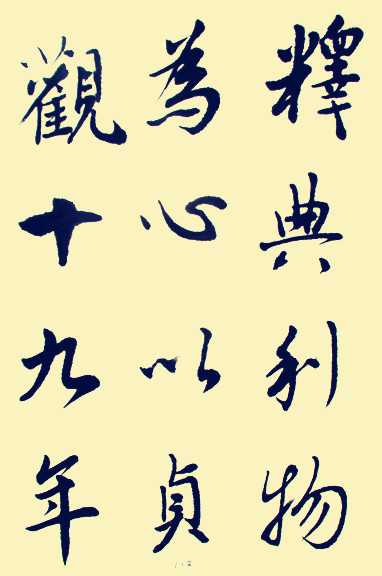 釋典利物
為心以貞
觀十九年